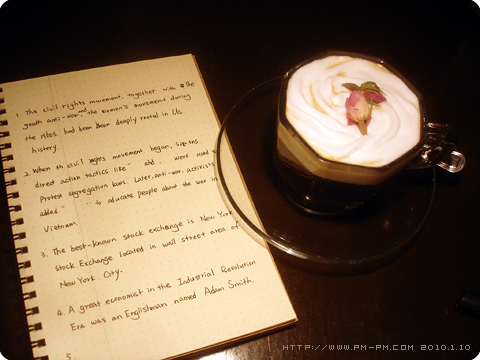 1. The civil rights movement, together with the
youth anti-war, and the women's movement during
the 1960s, had been deeply rooted in US.
history.
2. When th civil rights movement began, sip-ins.
direct action tactics like and were used
Protest segregation laws. Later, anti-war, activists
added to educate people about the war in
Vietnam.
3. The best-known stock exchange is New York
Stock Exchange located in wall street area of
New York City.
4. A great economist in the Industrial Revolution
Era was an Englishman named Adam Smith.
5.
HTTP://WWW.PM-PM.COM 2010.1.10